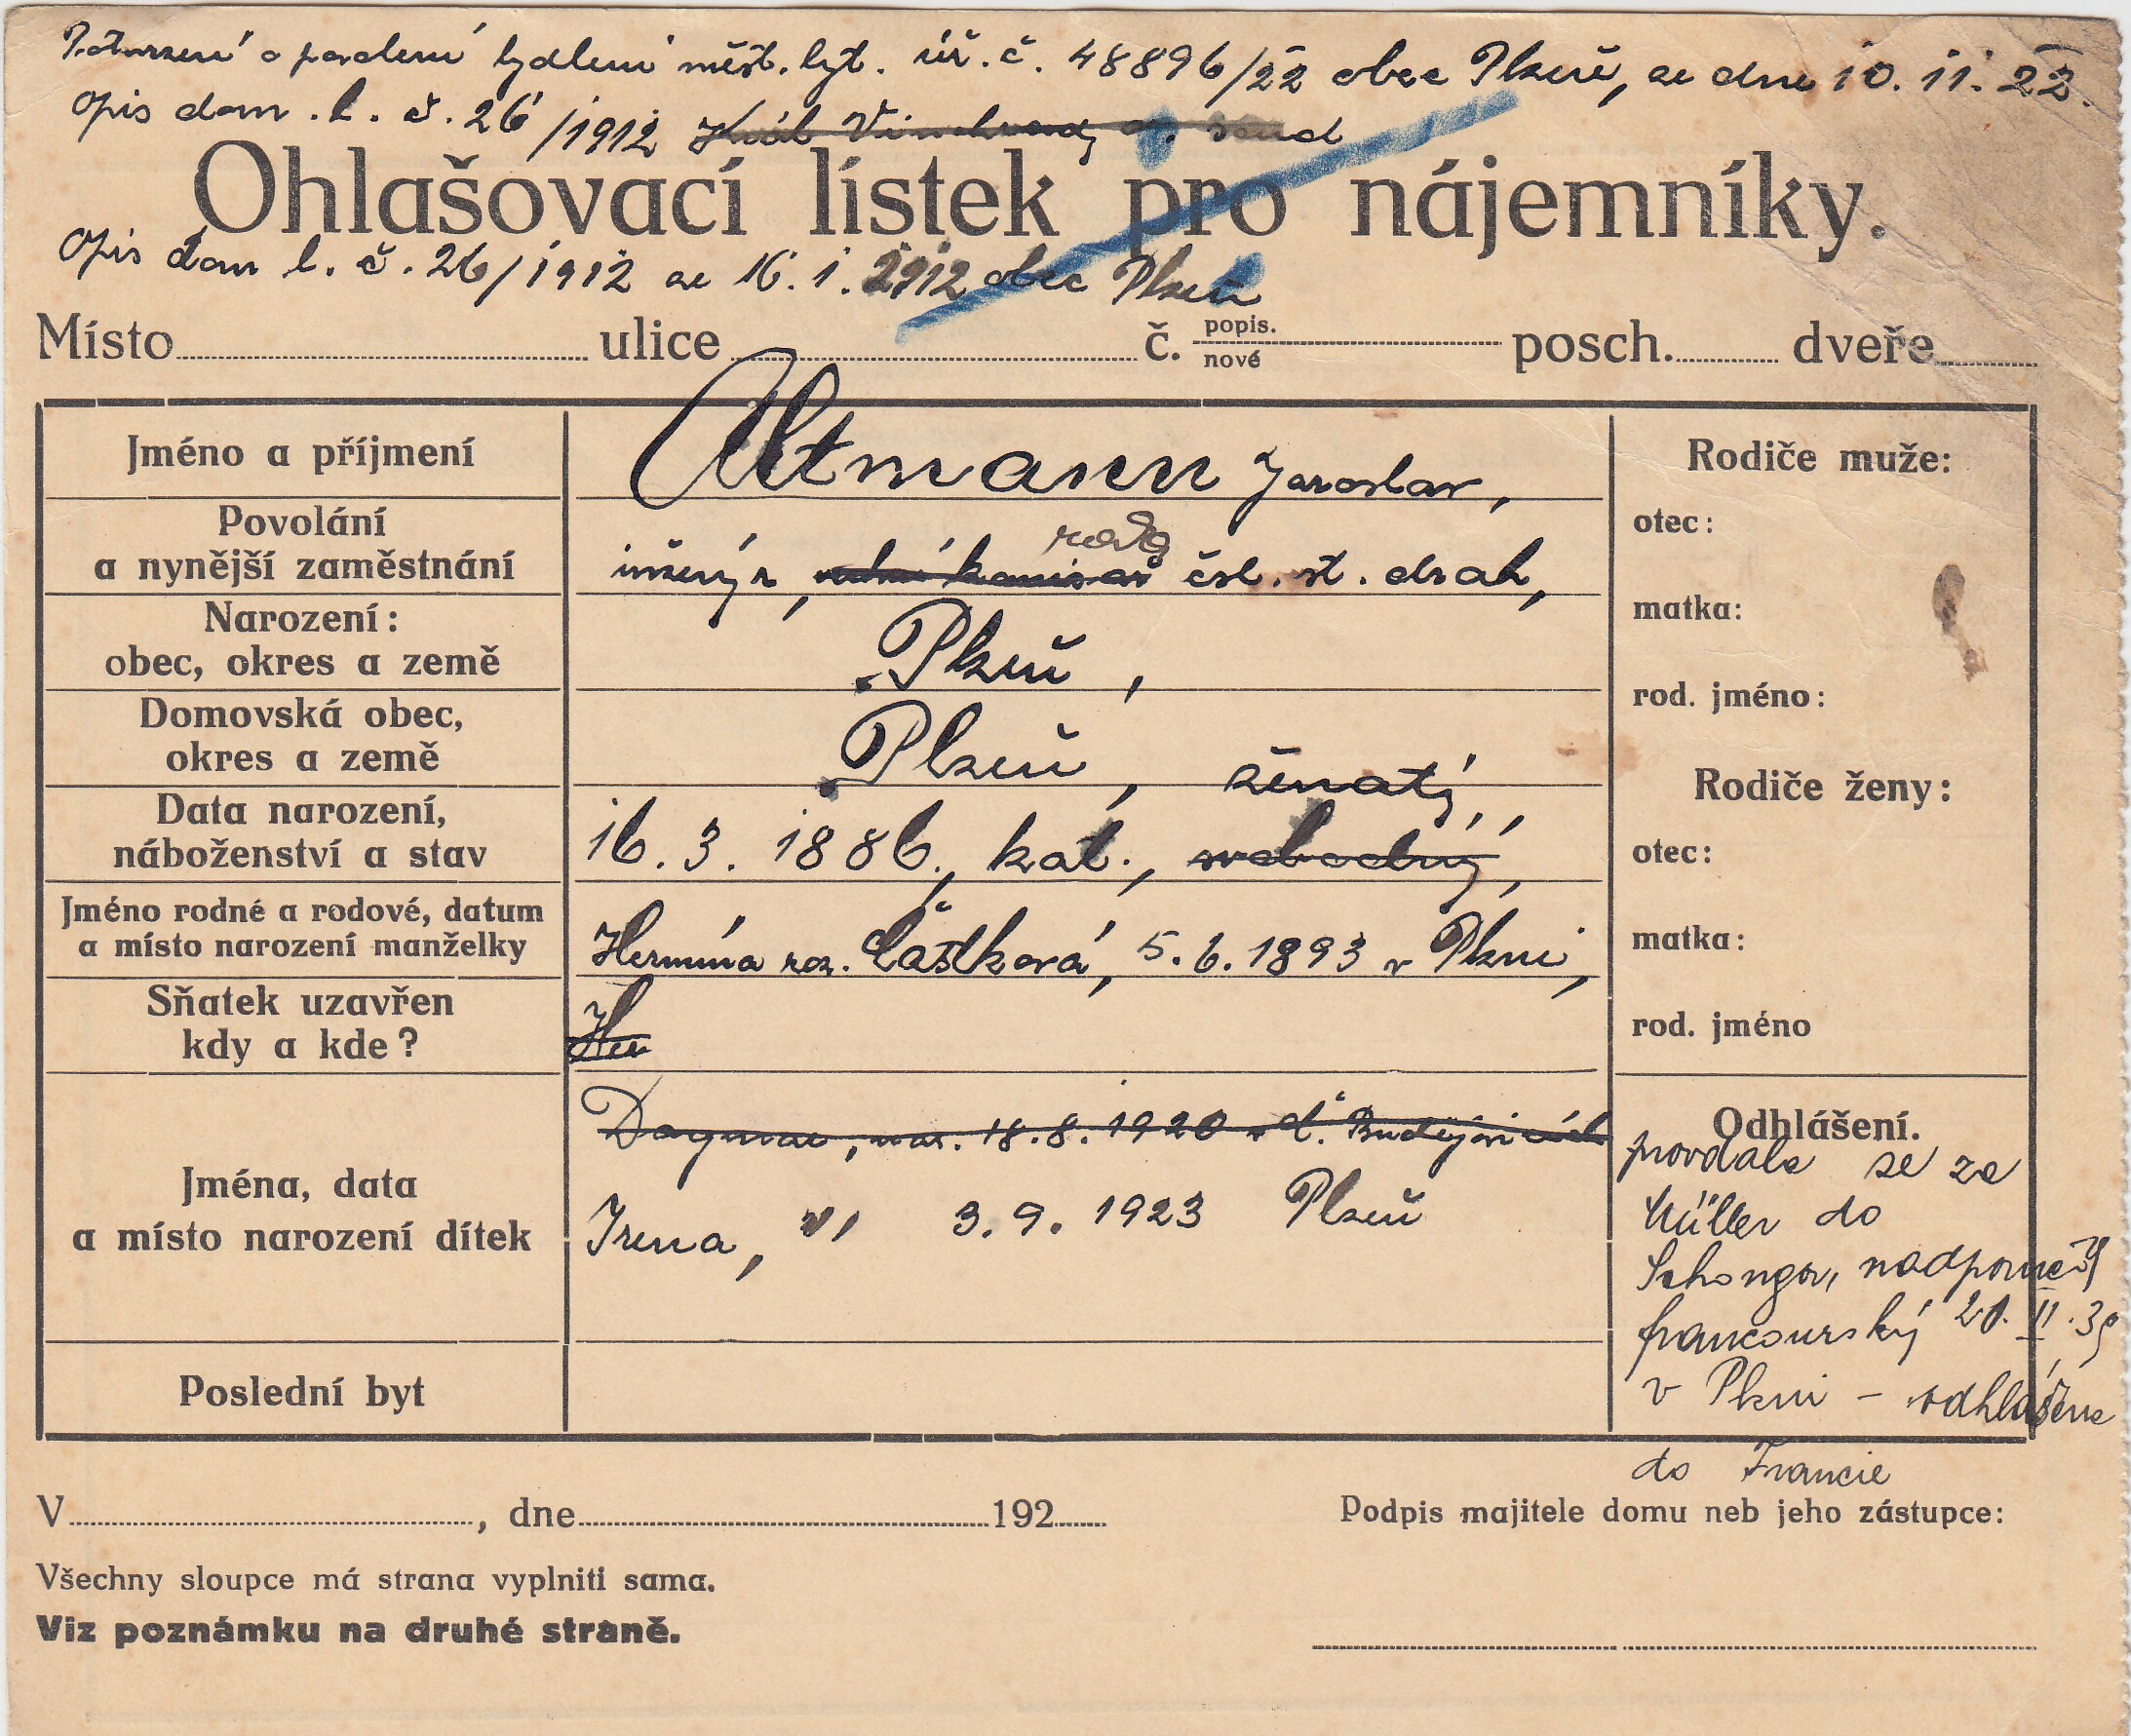 Potvrzení o povolení bydlení měst. byt. úř. č. 48896/22 obec Plzeň, ze dne 10. 11. 22.
Opis dom. l. č. 26/1912 Král Vinohrady
Ohlašovací lístek pro nájemníky.
Opis dom l. č. 26/1912 ze 16. 1. 1912 obec Plzeň
Místo ulice č. popis. nové posch. dveře
Jméno a příjmení Altmann Jaroslav,
Rodiče muže:
Povolání
a nynější zaměstnání inženýr, vrchní komisař rada čsl. st. drah,
otec:
Narození:
obec, okres a země Plzeň,
matka:
Domovská obec,
okres a země Plzeň, ženatý,
rod. jméno:
Rodiče ženy:
Data narození,
náboženství a stav 16. 3. 1886, kat., svobodný,
otec:
Jméno rodné a rodové, datum
a místo narození manželky Hermína roz. Částková, 5. 6. 1893 v Plzni,
matka:
Sňatek uzavřen
kdy a kde? Her
rod. jméno
Jména, data
a místo narození dítek
Dagmar, nar. 18. 8. 1920 v Č. Budějovicích
Irena, " 3. 9. 1923 Plzeň
Odhlášení.
provdala se za
Müller do
nadporučík
francouzský 20. II. 39
v Plzni – odhlášena
do Francie
Poslední byt
V , dne 192
Podpis majitele domu neb jeho zástupce:
Všechny sloupce má strana vyplniti sama.
Viz poznámku na druhé straně.